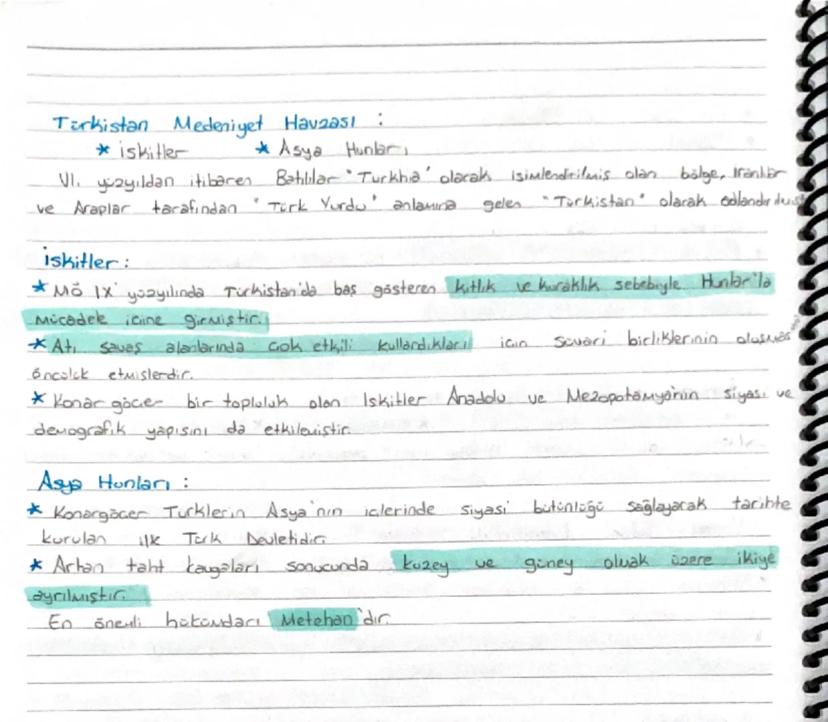 Türkistan Medeniyet Havzası :
* İskitler * Asya Hunları
VI. yüzyıldan itibaren Batılılar "Turkhia" olarak isimlendirilmiş olan bölge, İranlılar
ve Araplar tarafından "Türk Yurdu" anlamına gelen "Türkistan" olarak adlandırılmış
İskitler :
* MÖ IX yüzyılında Türkistan'da baş gösteren kıtlık ve kuraklık sebebiyle Hunlar'la
mücadele içine girmiştir.
* Atı savaş alanlarında çok etkili kullandıkları için süvari birliklerinin oluşması
öncülük etmişlerdir.
* Konar göçer bir topluluk olan İskitler Anadolu ve Mezopotamya'nın siyası ve
demografik yapısını da etkilemiştir.
Asya Hunları :
* Konargöçer Türklerin Asya'nın içlerinde siyasi bütünlüğü sağlayarak tarihte
kurulan ilk Türk Devletidir.
* Artan taht kavgaları sonucunda kuzey ve güney olmak üzere ikiye
ayrılmıştır.
En önemli hükümdarı Metehan'dır.